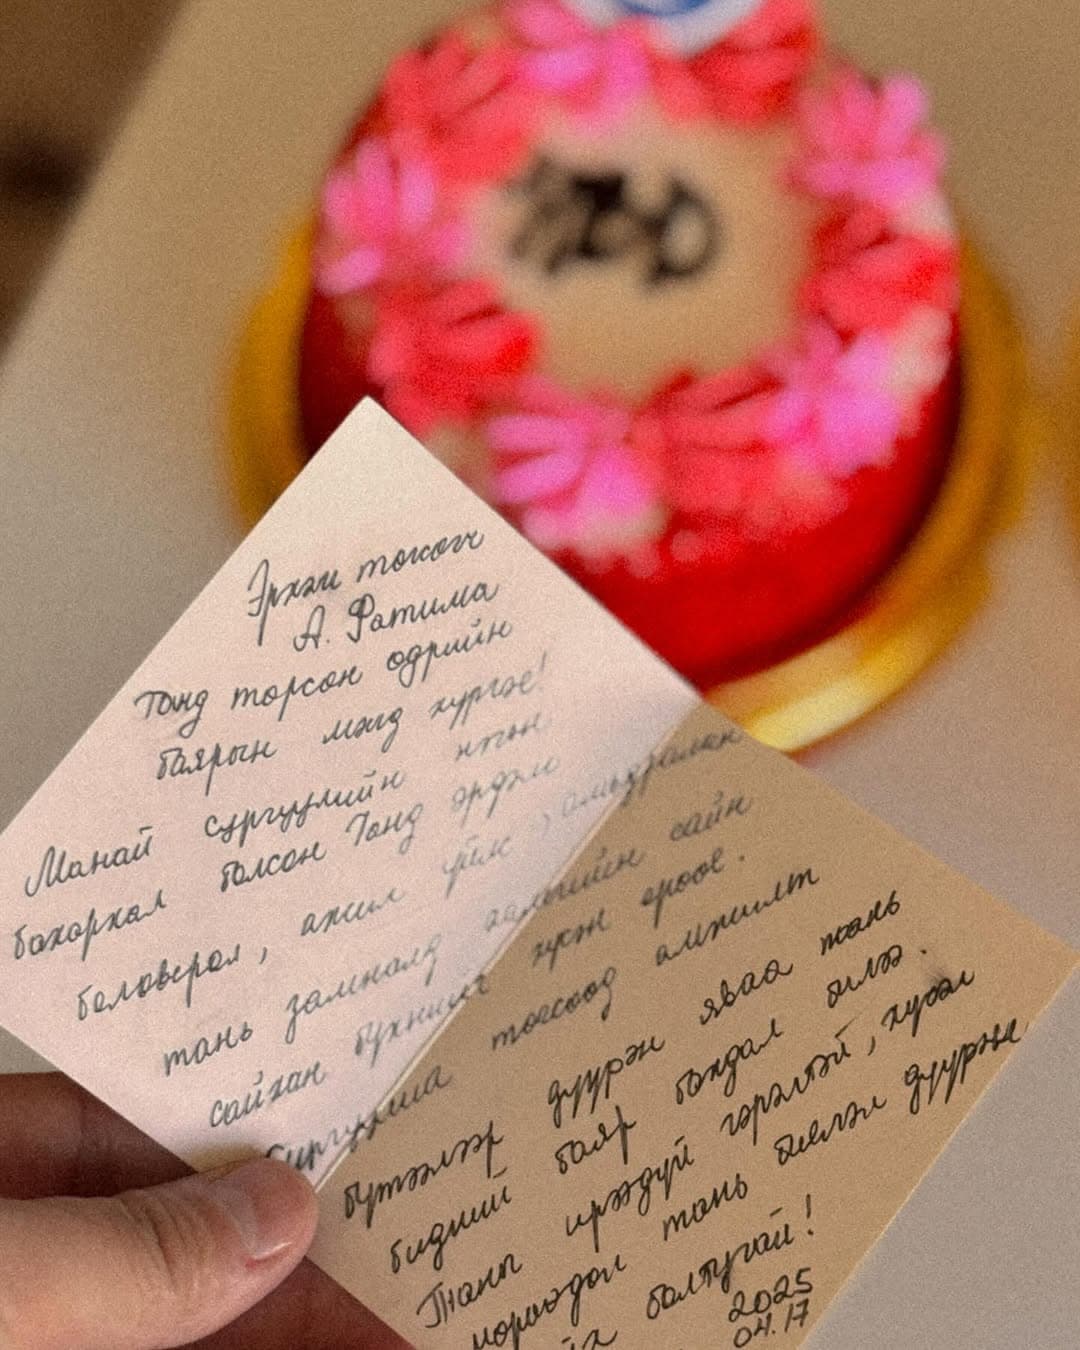 Эрхэм тоглогч
А. Фатима
Танд төрсөн өдрийн
баярын мэнд хүргэе!
Манай сургуулийн нэгэн
бахархал болсон Танд эрдэм
боловсрол, ажил үйлс, амьдралын
тань замналд заяагийн сайн
сайхан бүхнийг хүсэн ерөөе.
Сургуулиа төгсөөд амжилт
бүтээлээр дүүрэн яваа тань
бидний баяр бахдал билээ.
Таны ирээдүй гэрэлтэй, хүсэл
мөрөөдөл тань биелэл дүүрэн
байх болтугай!
2025
04.17